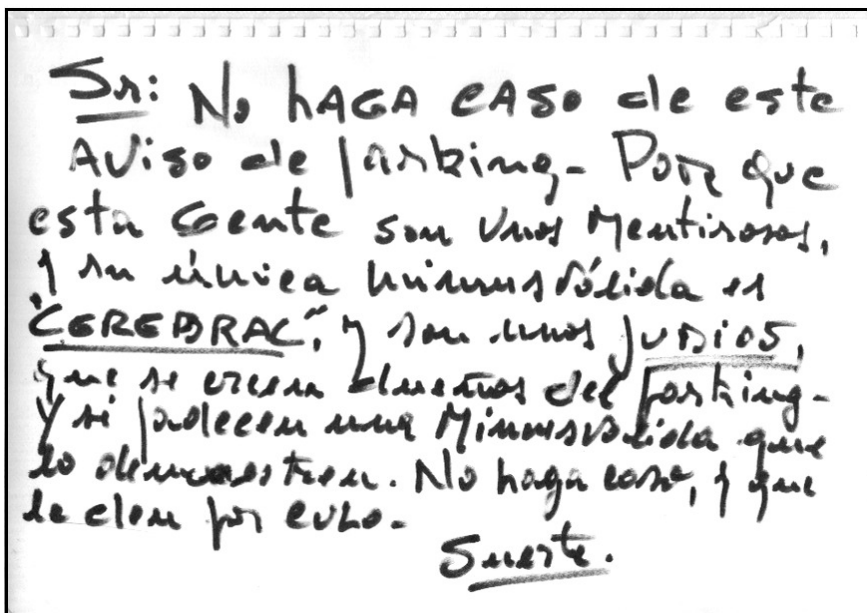 Sr: No hAGA CASO de este
AViso de parking- Por que
esta Gente son Unos Mentirosos,
y su única minusválida es
"CEREBRAL", y son unos JUDIOS,
que se creen dueños del parking-
Y si padecen una Minusválida que
lo demuestren. No haga caso, y que
le den por culo.
Suerte.